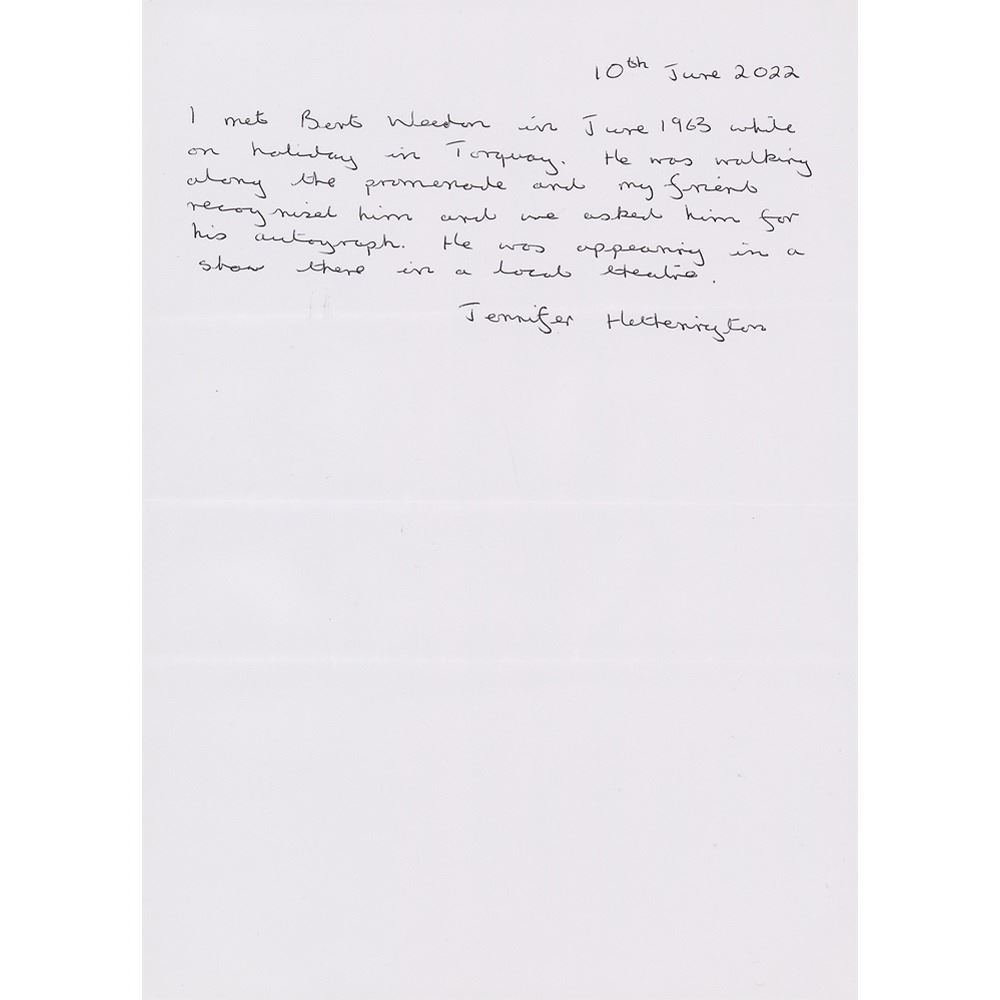 10th June 2022
I met Bert Weedon in June 1963 while
on holiday in Torquay. He was walking
along the promenade and my friend
recognised him and we asked him for
his autograph. He was appearing in a
show there in a local theatre.
Jennifer Hetherington